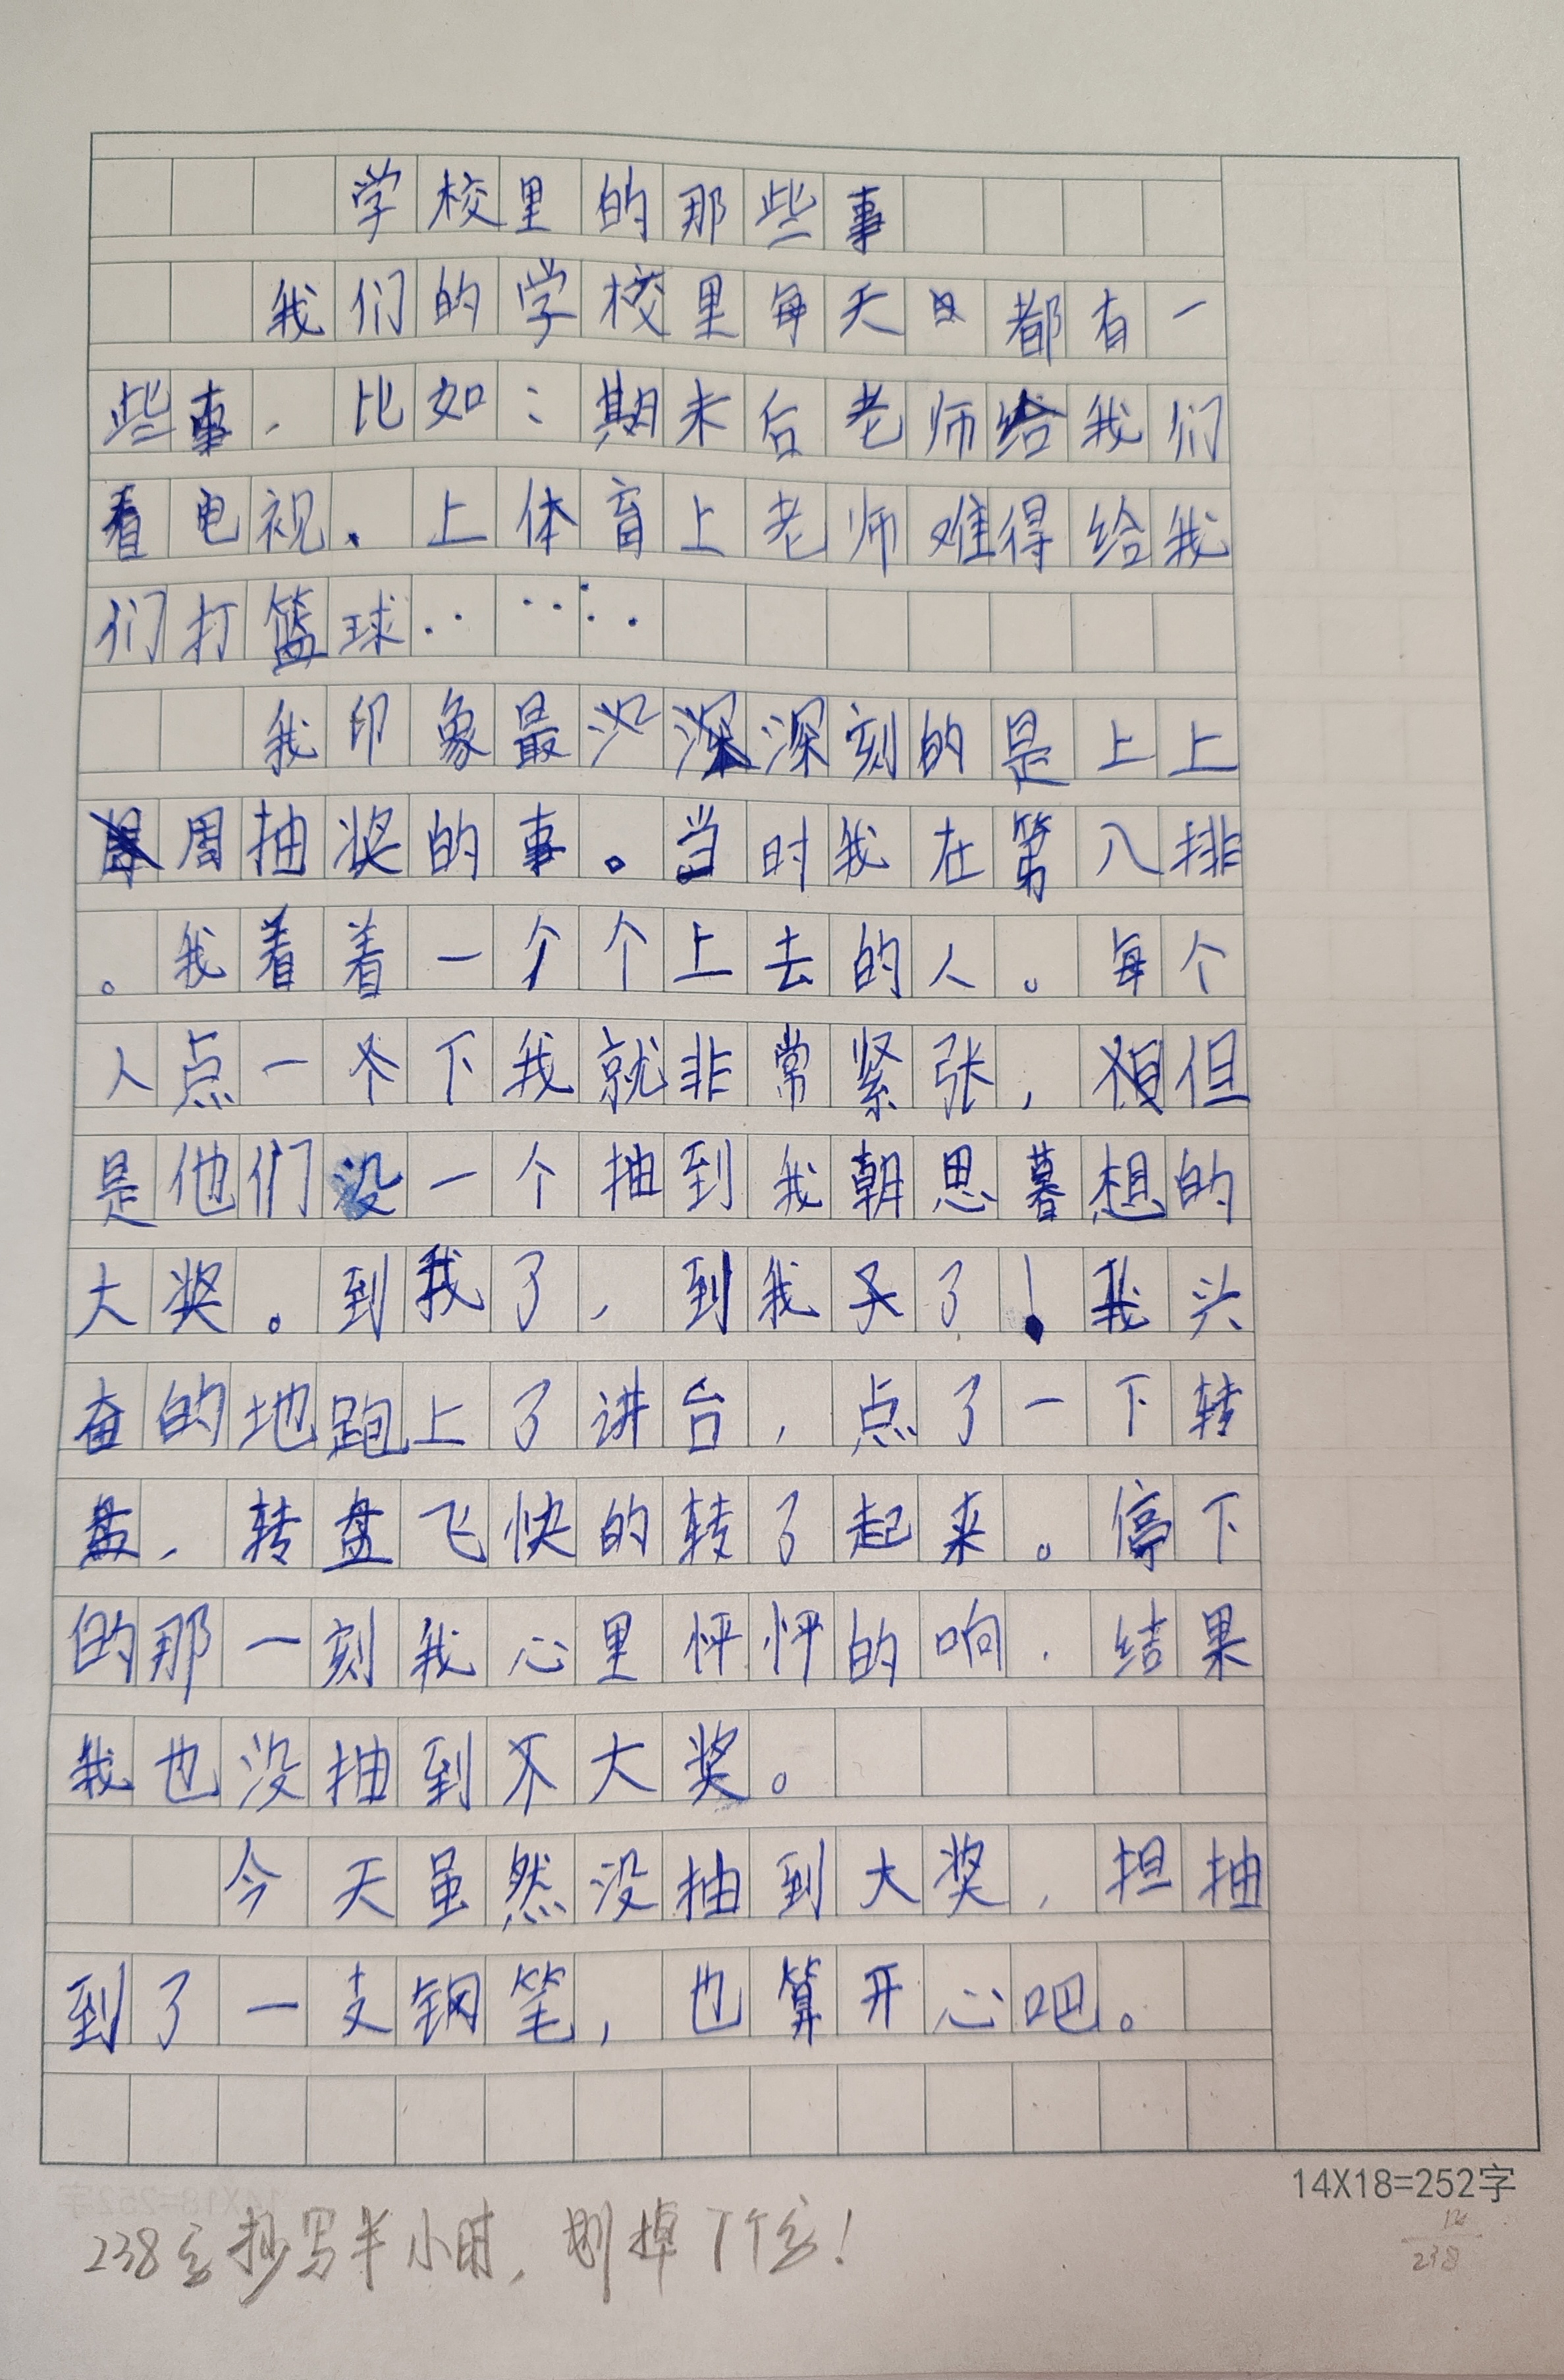 学校里的那些事
我们的学校里每天都有一
些事，比如：期末后老师给我们
看电视、上体育上老师难得给我
们打篮球……
我印象最深刻的是上上
周抽奖的事。当时我在第八排
。我看着一个个上去的人。每个
人点一下我就非常紧张，但
是他们没一个抽到我朝思暮想的
大奖。到我了，到我了！我兴
奋的地跑上了讲台，点了一下转
盘，转盘飞快的转了起来。停下
的那一刻我心里怦怦的响，结果
我也没抽到大奖。
今天虽然没抽到大奖，担抽
到了一支钢笔，也算开心吧。
14X18=252字
238字抄写半小时，删掉了个字！
238